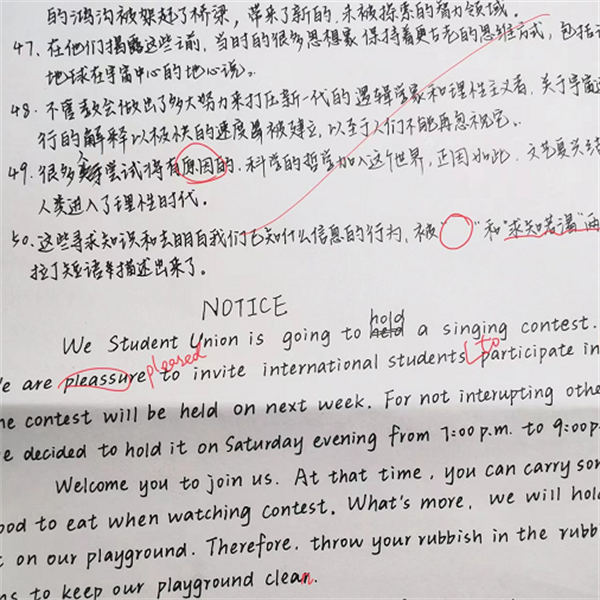 的鸿沟被架起了桥梁，带来了新的、未被探索的智力领域。
47. 在他们揭露这些之前，当时的很多思想家保持着更古老的思维方式，包括
地球在宇宙中心的地心说。
48. 不管教会做出了多大努力来打压新一代的逻辑学家和理性主义者，关于宇宙
行的解释以极快的速度被建立，以至于人们不能再忽视它。
49. 很多尝试得有原因的，科学的哲学加入这个世界，正因如此，文艺复兴
人类进入了理性时代。
50. 这些寻求知识和去明白我们已知什么信息的行为，被“ ”和“求知若渴”两
拉丁短语给描述出来了。
NOTICE
hold
We Student Union is going to held a singing contest.
pleased to
We are pleassure to invite international students participate in
the contest will be held on next week. For not interupting othe
e decided to hold it on Saturday evening from 7:00 p.m. to 9:00p
Welcome you to join us. At that time, you can carry som
food to eat when watching contest. What's more, we will hold
t on our playground. Therefore, throw your rubbish in the rubb
ns to keep our playground clean.